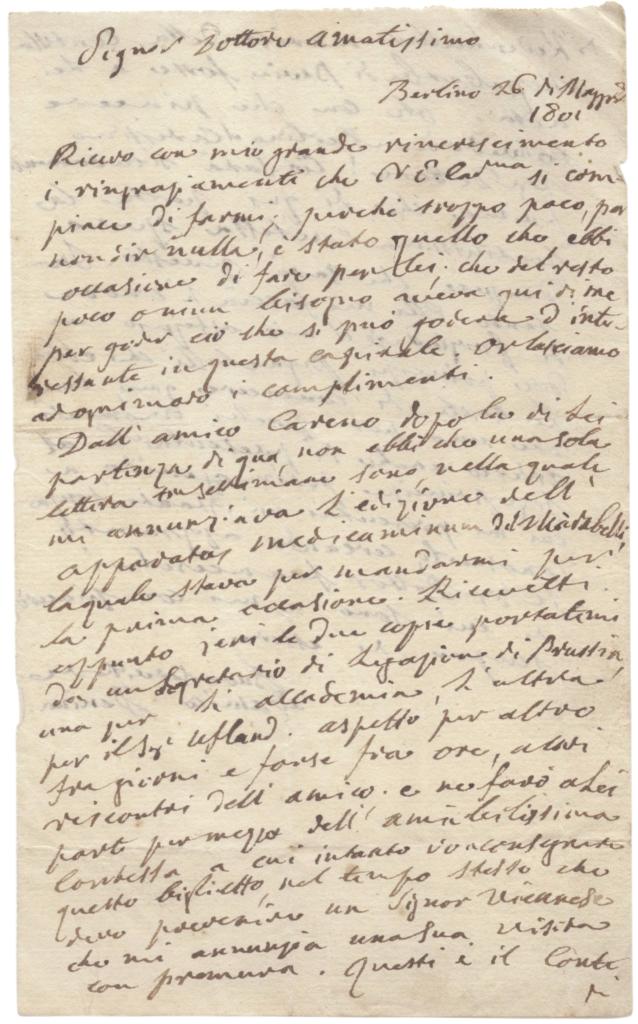 Signor Dottore amatissimo
Berlino 26 di Maggio
1801
Ricevo con mio grande rincrescimento
i ringraziamenti che V E. Cadma si com-
piace di farmi; perchè troppo poco, per
non dir nulla, è stato quello che ebbi
occasione di fare per Lei; che del resto
poco o niun bisogno aveva qui di me
per goder ciò che si può godere d'inte-
ressante in questa capitale. Or lasciamo
ad ogni modo i complimenti.
Dall' amico Careno dopo la di Lei
partenza di qua, non ebbi che una sola
lettera tre settimane sono, nella quale
mi annunziava l'edizione dell'
apparatus medicaminum del Marabelli,
la quale stava per mandarmi per
la prima occasione. Ricevetti
appunto jeri le due copie portatemi
da un Segretario di Legazione di Prussia,
una per l'accademia, l'altra
per il Sigr Ufland. aspetto per altro
fra giorni e forse fra ore, altri
riscontri dell' amico. e ne farò a Lei
parte per mezzo dell' amabilissima
Contessa a cui intanto vo a consegnare
questo biglietto, nel tempo stesso che
devo prevenire un Signor Viennese
che mi annunzia una sua visita
con premura. Questi è il Conte